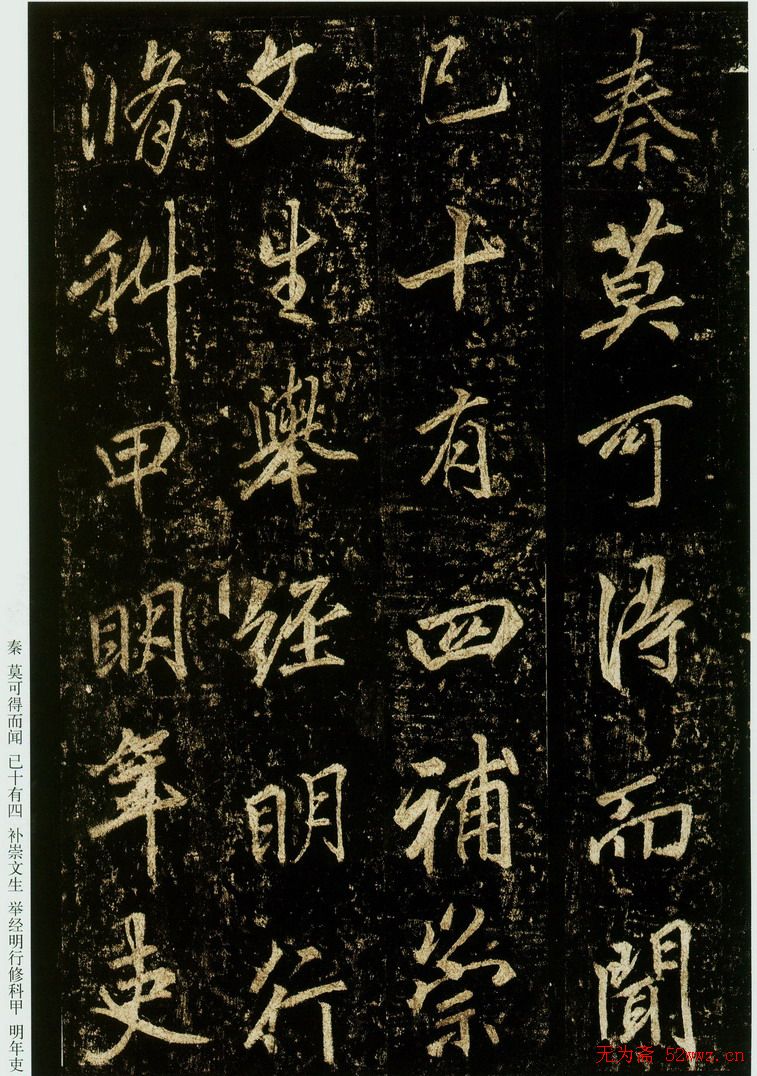 秦莫可得而聞
已十有四補崇
文生舉經明行
脩科甲明年吏
秦 莫可得而闻 已十有四 补崇文生 举经明行修科甲 明年吏
无为斋 52wwz.cn